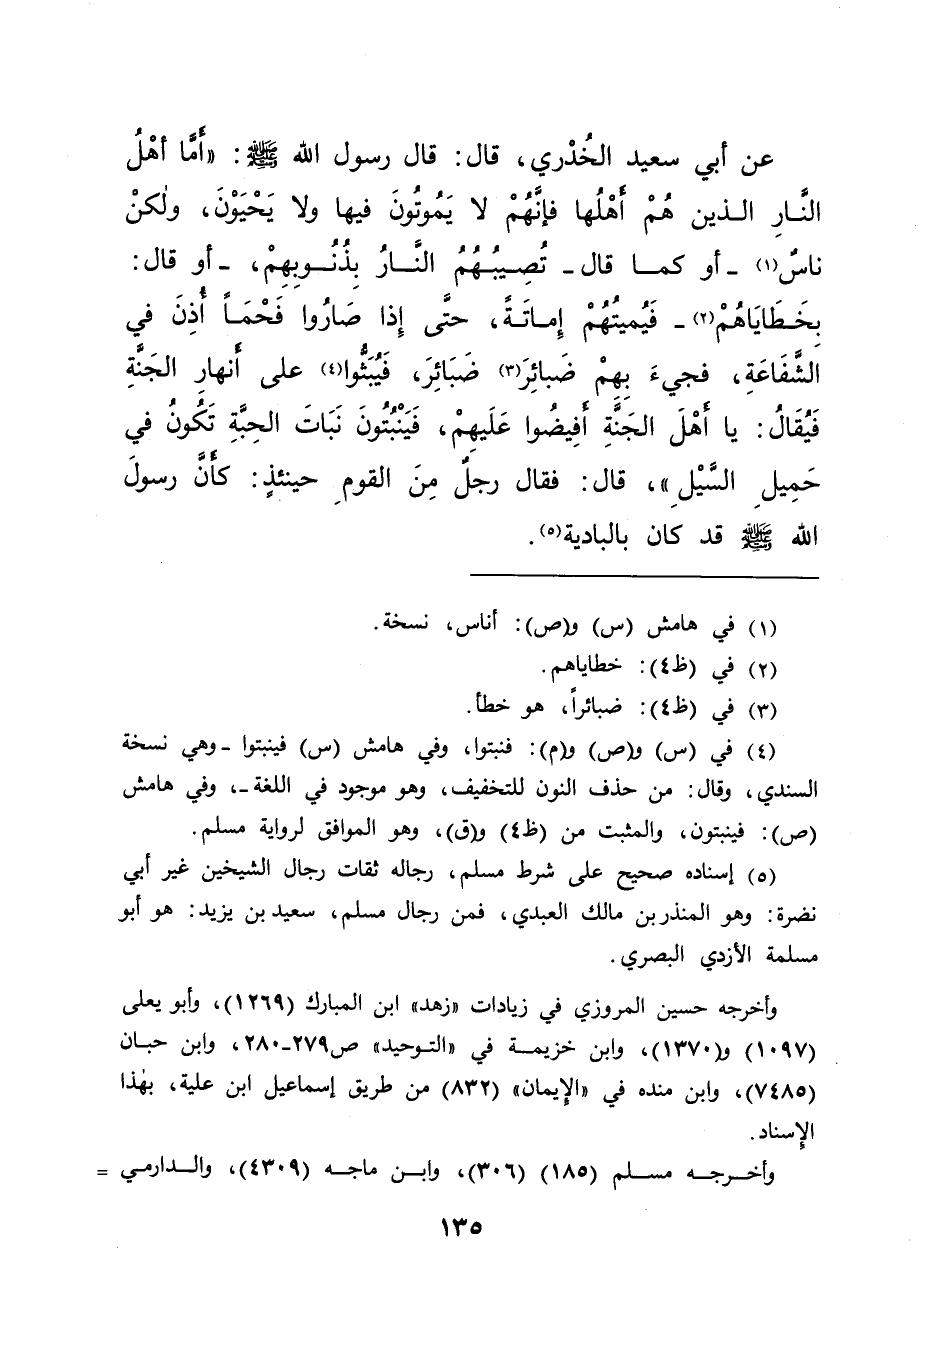 عن أبي سعيد الخُدْري، قال: قال رسول الله ﷺ: «أَمَّا أهْلُ
النَّارِ الذين هُمْ أَهْلُها فإنَّهُمْ لا يَمُوتُونَ فيها ولا يَحْيَوْنَ، ولٰكنْ
ناسٌ(١) ـ أو كما قال ـ تُصِيبُهُمُ النَّارُ بِذُنُوبِهِمْ، ـ أو قال:
بِخَطَايَاهُمْ(٢) ـ فَيُمِيتُهُمْ إماتَةً، حتَّى إِذا صَارُوا فَحْمَاً أُذِنَ في
الشَّفَاعَةِ، فجيءَ بِهِمْ ضَبائِرَ(٣) ضَبَائِرَ، فَيُبَثُّوا(٤) على أَنهارِ الجَنَّةِ
فَيُقَالُ: يا أَهْلَ الجَنَّةِ أَفِيضُوا عَلَيهِمْ، فَيَنْبُتُونَ نَبَاتَ الحِبَّةِ تَكُونُ في
حَمِيلِ السَّيْلِ»، قال: فقال رجلٌ مِنَ القومِ حينئذٍ: كأَنَّ رسولَ
الله ﷺ قد كان بالبادية(٥).
(١) في هامش (س) و(ص): أناس، نسخة.
(٢) في (ظ٤): خطاياهم.
(٣) في (ظ٤): ضبائراً، هو خطأ.
(٤) في (س) و(ص) و(م): فنبتوا، وفي هامش (س) فينبتوا ـ وهي نسخة
السندي، وقال: من حذف النون للتخفيف، وهو موجود في اللغة ـ، وفي هامش
(ص): فينبتون، والمثبت من (ظ٤) و(ق)، وهو الموافق لرواية مسلم.
(٥) إسناده صحيح على شرط مسلم، رجاله ثقات رجال الشيخين غير أبي
نضرة: وهو المنذر بن مالك العبدي، فمن رجال مسلم، سعيد بن يزيد: هو أبو
مسلمة الأزدي البصري.
وأخرجه حسين المروزي في زيادات «زهد» ابن المبارك (١٢٦٩)، وأبو يعلى
(١٠٩٧) و(١٣٧٠)، وابن خزيمة في «التوحيد» ص٢٧٩ـ٢٨٠، وابن حبان
(٧٤٨٥)، وابن منده في «الإيمان» (٨٣٢) من طريق إسماعيل ابن علية، بهٰذا
الإسناد.
وأخرجه مسلم (١٨٥) (٣٠٦)، وابن ماجه (٤٣٠٩)، والدارمي =
١٣٥